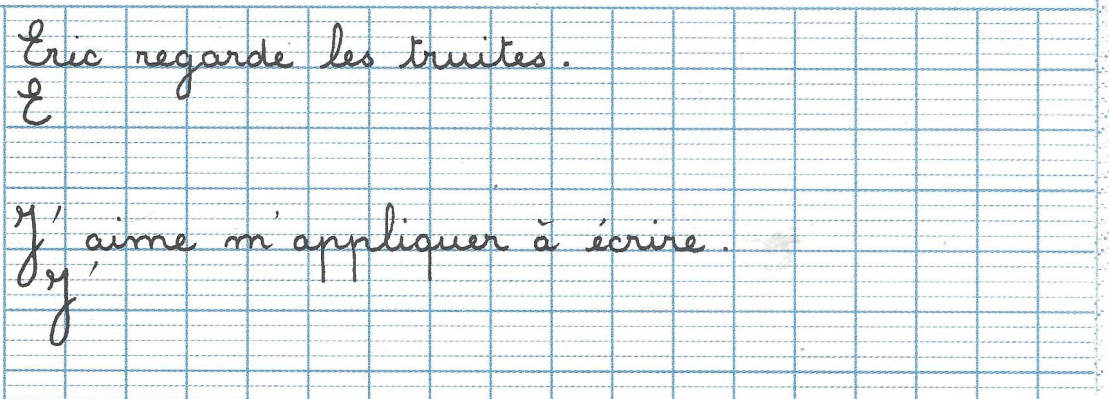 Eric regarde les truites.
E
J'aime m'appliquer à écrire.
J'